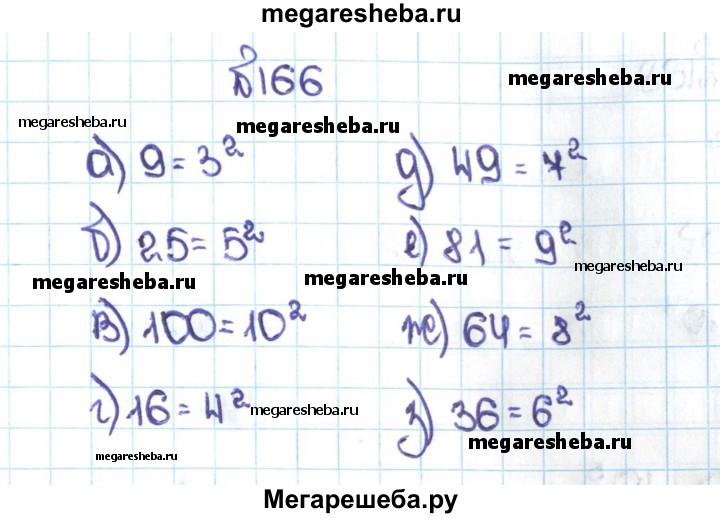 megaresheba.ru
№166
megaresheba.ru
megaresheba.ru
megaresheba.ru
а) 9 = 3²
д) 49 = 7²
б) 25 = 5²
е) 81 = 9²
megaresheba.ru
megaresheba.ru
megaresheba.ru
в) 100 = 10²
ж) 64 = 8²
г) 16 = 4²
megaresheba.ru
з) 36 = 6²
megaresheba.ru
megaresheba.ru
Мегарешеба.ру